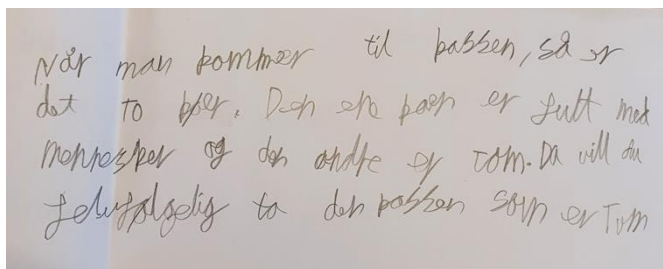 Når man kommer til kassen, så er
det TO køer. Den ene køen er fult med
mennesker og den andre er TOM. Da vill du
selufølgelig ta den kassen som er Tom